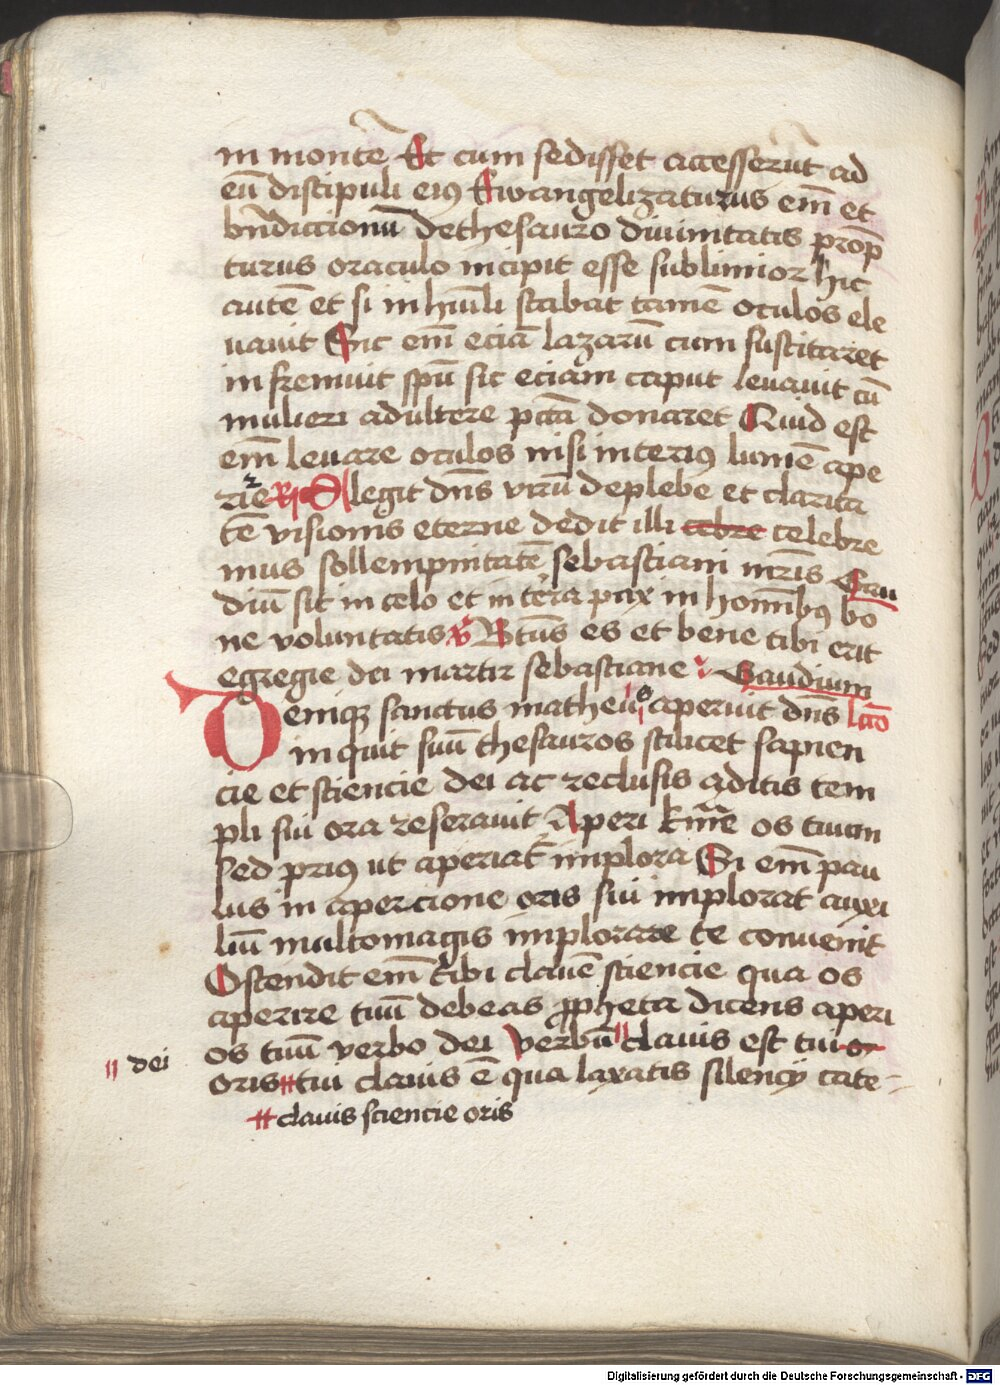 in montē Et cum sedisset accesserūt ad
eū discipuli eiꝰ Ewangelizaturus em̄ et
bn̄diccionū de thesauro diuinitatis prop̄
turus oraculo incipit esse sublimior hic
autē et si in hūili stabat tamē oculos ele
uauit Sic em̄ eciā lazarū cum suscitaret
in fremuit spū sic eciam caput leuauit cū
mulieri adultere pctā donaret Quid est
em̄ leuare oculos nisi interiꝰ lumē ape
rire R Elegit dn̄s virū de plebe et clarita
tē visionis eterne dedit illi cebre celebre
mus sollempnitatē sebastiani mr̄is Gau
diū sit in celo et in terra pax in hoīnibꝰ bo
ne voluntatis ℣ Btūs es et bene tibi erit
egregie dei martir sebastiane Gaudium
Deniqꝫ sanctus matheus aperuit dn̄s lctō
inquit suū thesauros scilicet sapien
cie et sciencie dei ac reclusis aditis tem
pli sui ora reserauit Aperi kr̄me os tuum
sed priꝰ ut aperiat͛ implora Si em̄ pau
lus in apercione oris sui implorat auxi
liū multomagis implorare te conuenit
Ostendit em̄ tibi clauē sciencie qua os
aperire tuū debeas ꝓpheta dicens aperi
os tuū verbo dei Verbū // clauis est tuis
// dei
oris # tui clauis ē qua laxatis silencij cate-
# clauis sciencie oris
Digitalisierung gefördert durch die Deutsche Forschungsgemeinschaft - DFG